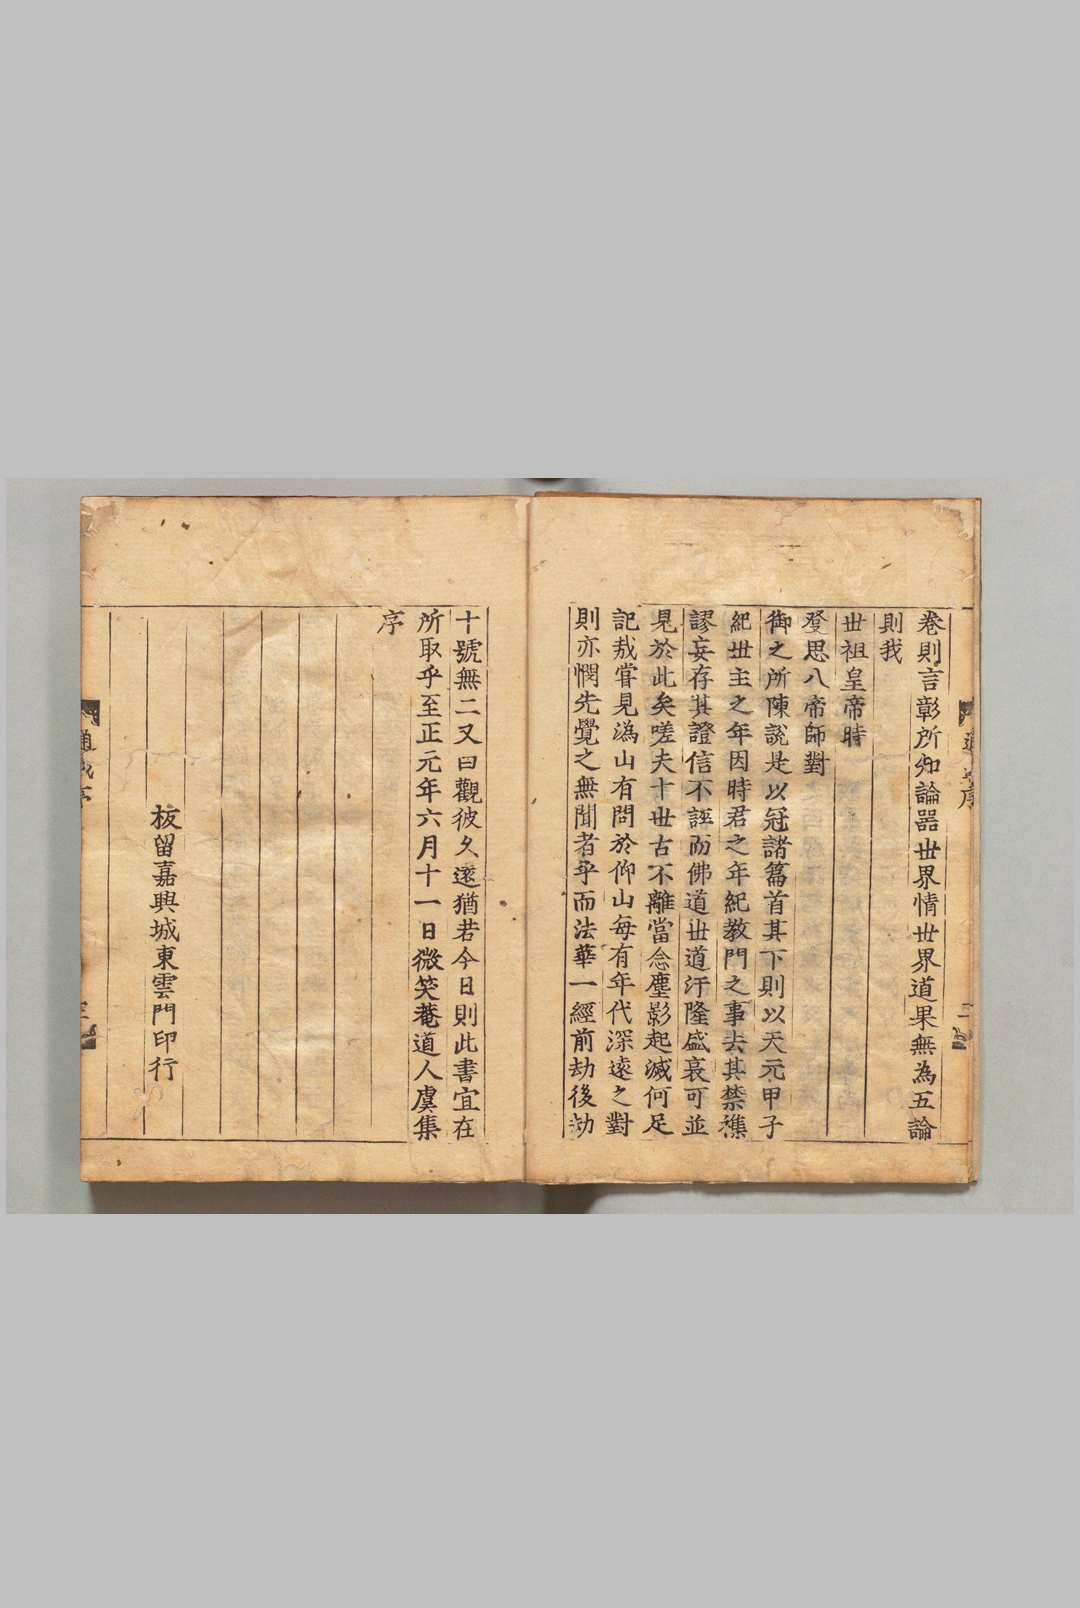 卷則言彰所知論器世界情世界道果無為五論
則我
世祖皇帝時
發思八帝師對
御之所陳說是以冠諸篇首其下則以天元甲子
紀世主之年因時君之年紀教門之事去其禁禨
謬妄存其證信不誣而佛道世道汙隆盛衰可並
見於此矣嗟夫十世古不離當念塵影起滅何足
記哉嘗見溈山有問於仰山每有年代深遠之對
則亦憫先覺之無聞者乎而法華一經前劫後劫
十號無二又曰觀彼久遠猶若今日則此書宜在
所取乎至正元年六月十一日微笑菴道人虞集
序
板留嘉興城東雲門印行